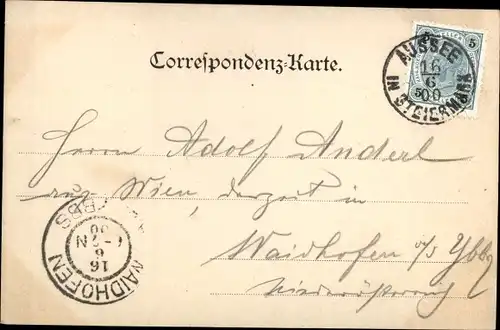 5
AUSSEE
16
6
5 00
IN STEIERMARK
Correspondenz-Karte.
Herrn Adolf Anderl
aus Wien, derzeit in
Waidhofen a/d Ybbs
Niederösterreich
WAIDHOFEN
YBBS
16
6
00